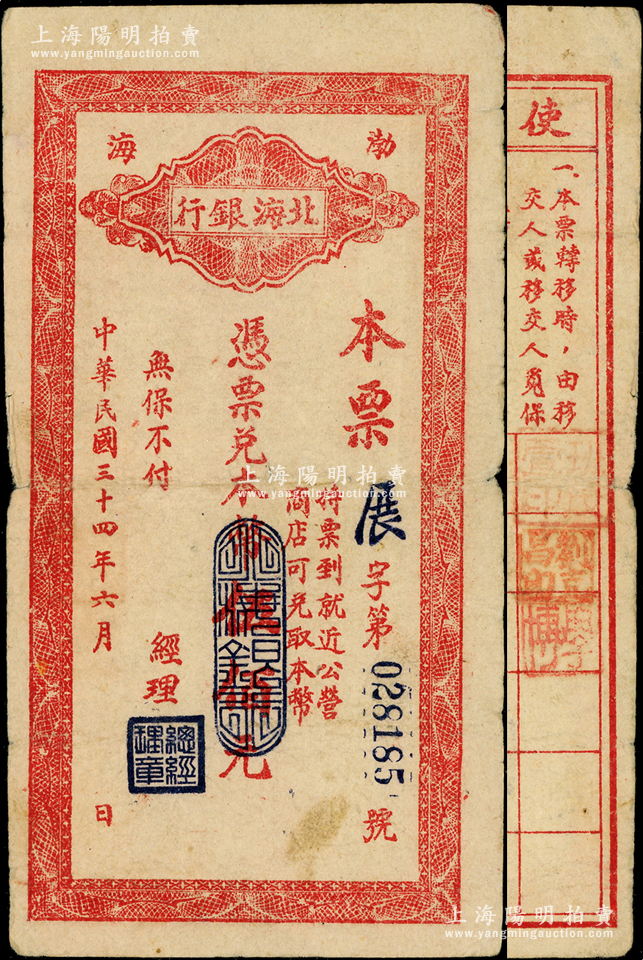 上海陽明拍賣
www.yangmingauction.com
渤海
北海銀行
本票
展字第028185號
持票到就近公營
商店可兌取本幣
憑票兌本幣
元
無保不付
經理
總經
理章
中華民國三十四年六月
日
使
一、本票轉移時，由移
交人或移交人覓保
上海陽明拍賣
www.yangmingauction.com
上海陽明拍賣
www.yangmingauction.com